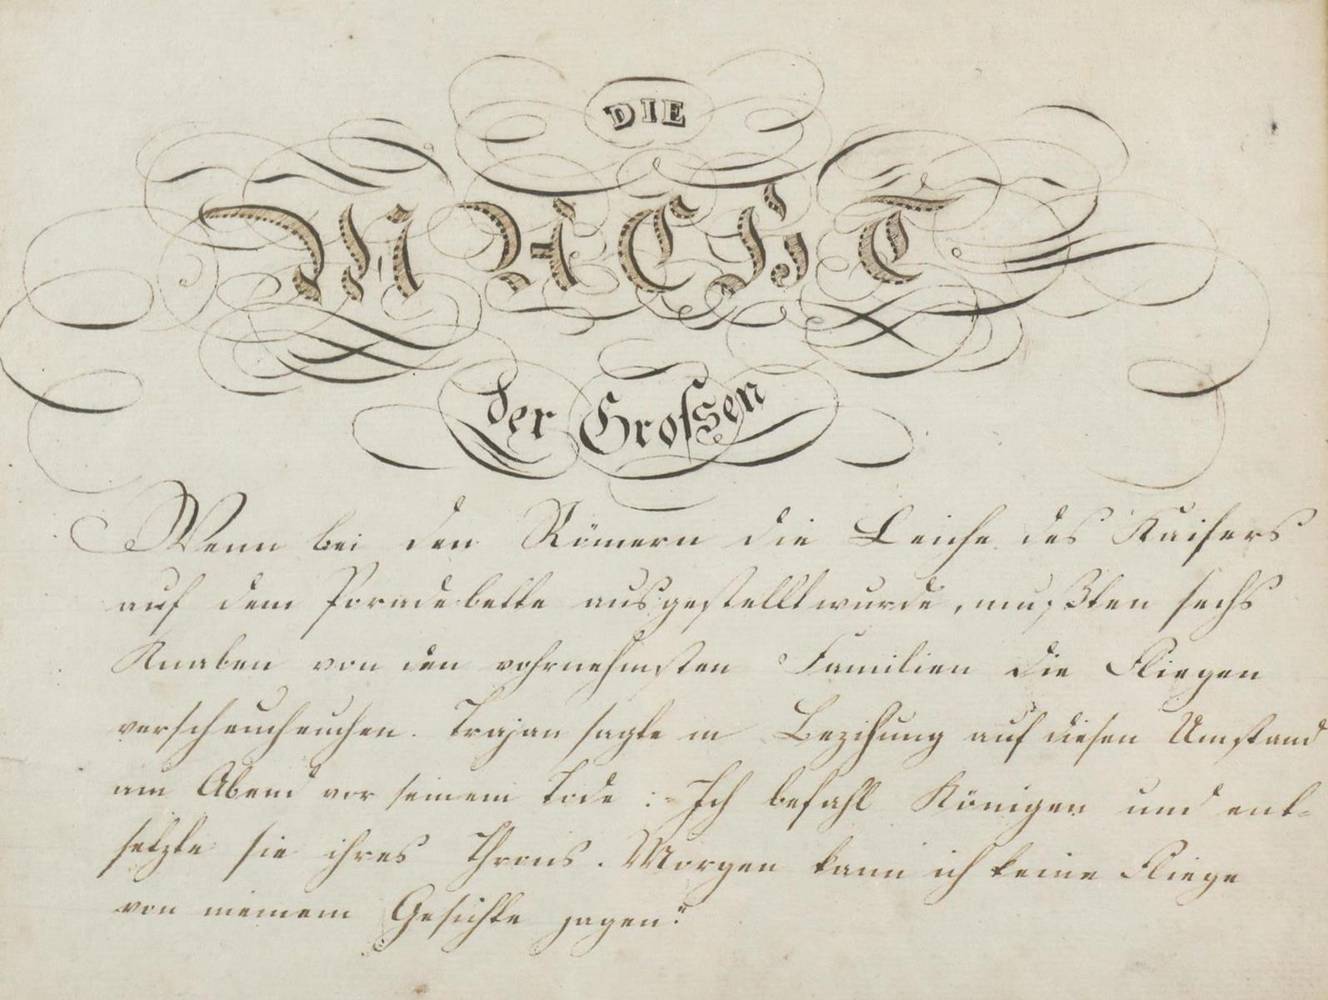 DIE
MACHT
der Groſsen
Wenn bei den Römern die Leiche des Kaisers
auf dem Paradebette ausgestellt wurde, mußten sechs
Knaben von den vohrnehmsten Familien die Fliegen
verscheucheuchen. Trajan sagte in Bezihung auf diesen Umstand
am Abend vor seinem Tode :- Ich befahl Königen und ent-
setzte sie ihres Throns. Morgen kann ich keine Fliege
von meinem Gesichte jagen."